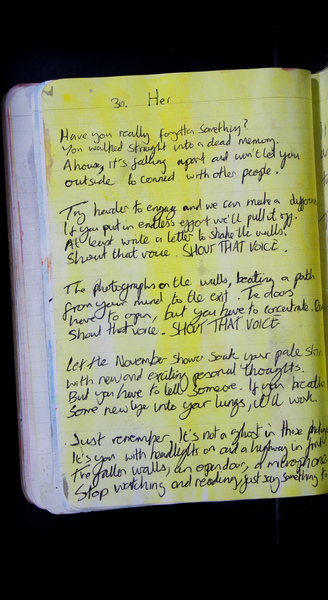 30. Her
Have you really forgotten something?
You walked straight into a dead memory.
A house, it's falling apart and won't let you
outside to connect with other people.
Try harder to engage and we can make a difference
If you put in endless effort we'll pull it off.
At least write a letter to shake the walls.
Shout that voice. SHOUT THAT VOICE.
The photographs on the walls, beating a path
from your mind to the exit. The doors
have to open, but you have to concentrate.
Shout that voice. SHOUT THAT VOICE
Let the November showers soak your pale skin
with new and exciting personal thoughts.
But you have to tell someone. If you breathe
some new life into your lungs, it'll work.
Just remember, It's not a ghost in these
It's you with headlights on and a highway in front
The fallen walls, an open door, a microphone
Stop watching and reading, just say something